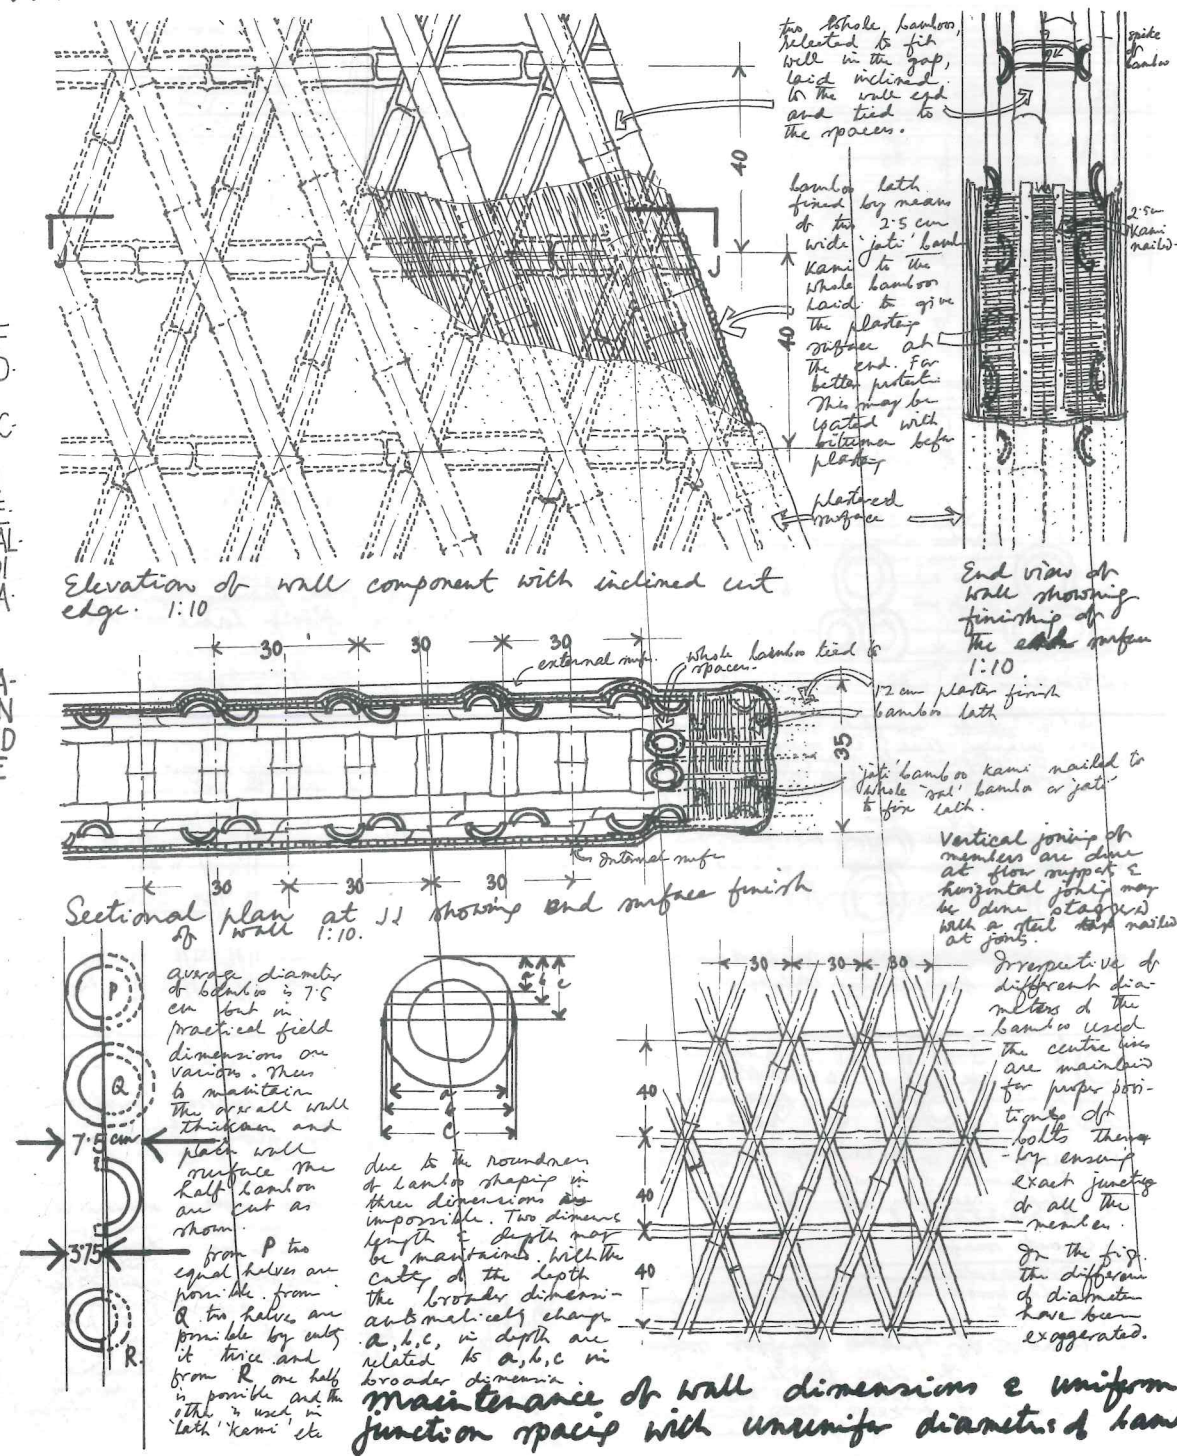 two whole bamboos,
selected to fit
well in the gap,
laid inclined
to the wall end
and tied to
the spacers.
spike
of
bamboo
40
bamboo lath
fixed by means
of two 2.5 cm
wide 'jati' bamb
Kami to the
whole bamboos
laid to give
the plastering
surface at
the end. For
better protecti
this may be
coated with
bitumen befor
plastering
2.5 cm
Kami
nailed
40
plastered
surface
J
J
Elevation of wall component with inclined cut
edge. 1:10
End view of
wall showing
finishing of
the surface
1:10
30
30
30
external surf.
whole bamboo tied to
spacers.
12 cm plaster finish
bamboo lath
35
'jati' bamboo kami nailed to
whole 'sal' bamboo or 'jati'
to fix lath.
internal surf
30
30
30
Sectional plan at JJ showing end surface finish
of wall 1:10.
Vertical joining of
members are done
at floor support &
horizontal joing may
be done staggered
with a steel nailed
at joints.
P
Q
7.5 cm
3.75
R.
average diameter
of bamboo is 7.5
cm but in
practical field
dimensions are
various. Thus
to maintain
the overall wall
thickness and
plain wall
surface the
half bamboo
are cut as
shown.
from P two
equal halves are
possible. from
Q two halves are
possible by cutg
it twice and
from R one half
is possible and the
other is used in
'lath' 'kami' etc
a
b
c
a
b
c
due to the roundness
of bamboo shaping in
three dimensions is
impossible. Two dimens
length & depth may
be maintained. With the
cuttg of the depth
the broader dimensi-
automatically change
a, b, c, in depth are
related to a, b, c in
broader dimensin.
30
30
30
40
40
40
Irrespective of
different dia-
meters of the
bamboo used
the centre lines
are maintaind
for proper posi-
tiong of
bolts there
-by ensuring
exact junctig
of all the
member.
In the fig.
the differenc
of diameter
have been
exaggerated.
Maintenance of wall dimensions & uniform
junction spacing with ununifor diametres of bam